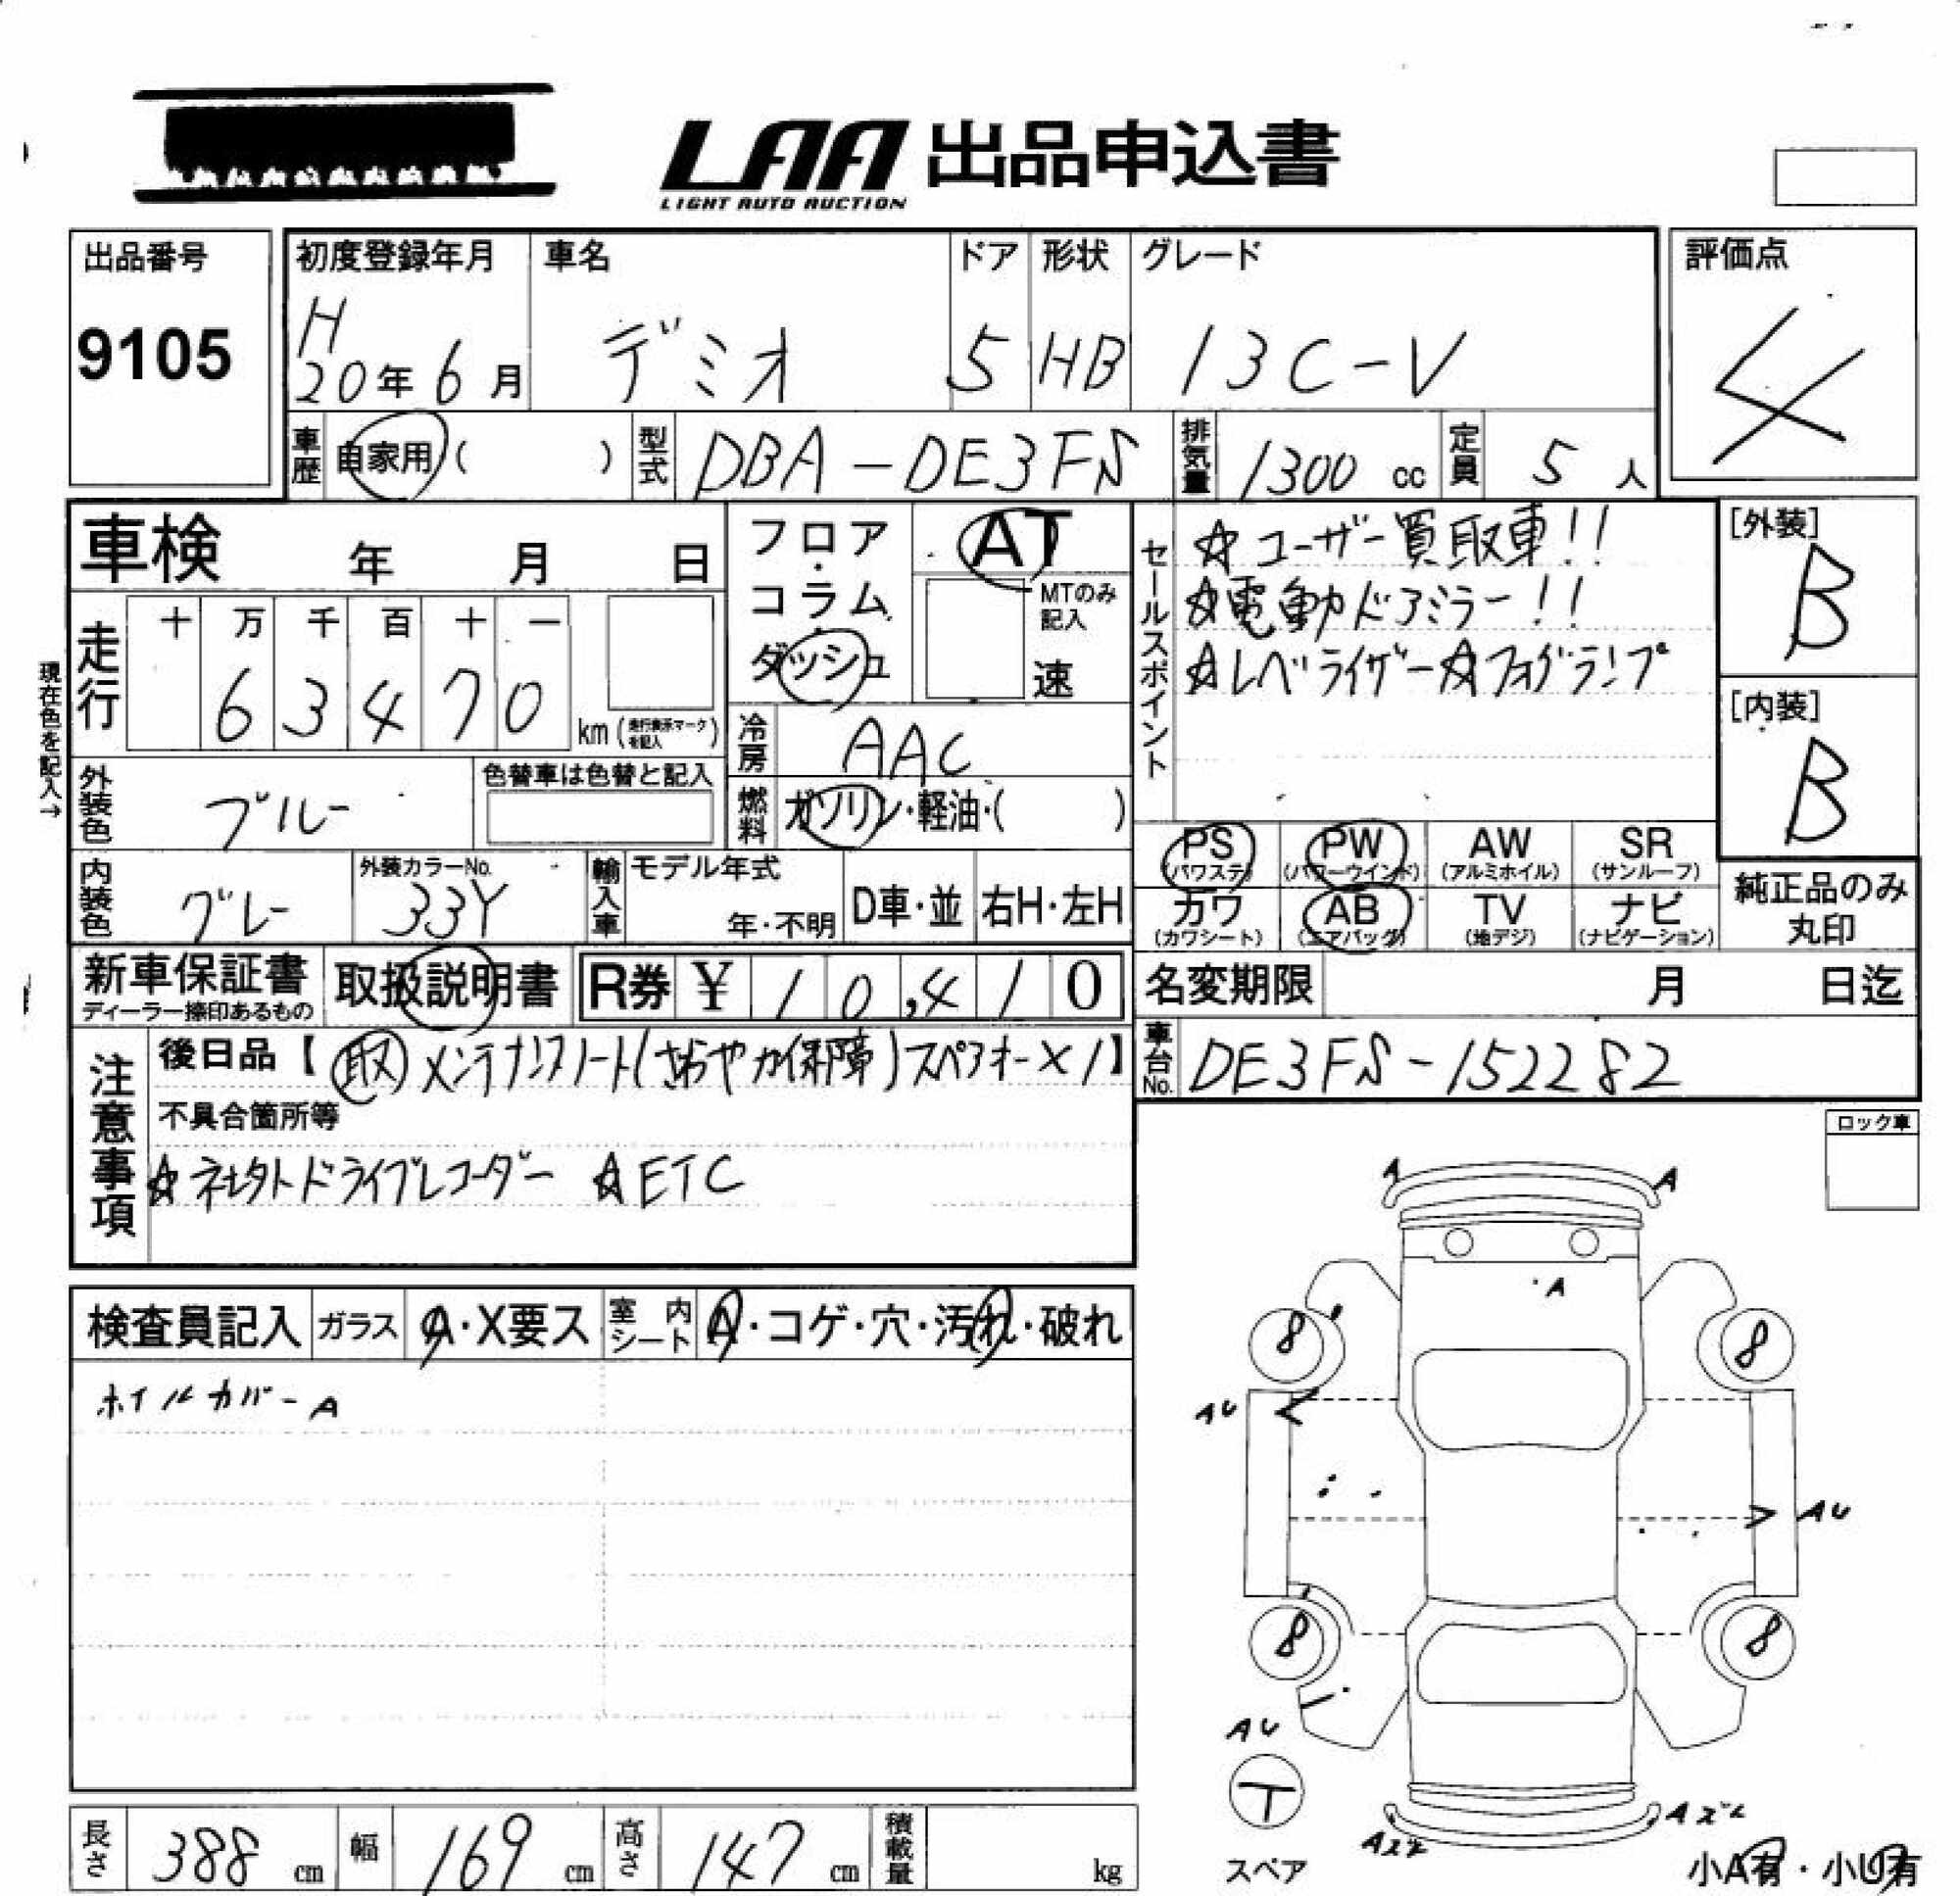 LAA 出品申込書
LIGHT AUTO AUCTION
出品番号
9105
初度登録年月
H
20年6月
車名
デミオ
ドア
5
形状
HB
グレード
13C-V
評価点
4
車歴
自家用( )
型式
DBA-DE3FS
排気量
1300 cc
定員
5人
車検 年 月 日
走行
十 万 千 百 十 一
6 3 4 7 0
km(走行表示マークを記入)
現在色を記入→
フロア・
コラム・
ダッシュ
AT
MTのみ
記入
速
冷房
AAC
燃料
ガソリン・軽油・( )
セールスポイント
☆ユーザー買取車!!
☆電動ドアミラー!!
☆レベライザー☆フォグランプ
[外装]
B
[内装]
B
外装色
ブルー
色替車は色替と記入
内装色
グレー
外装カラーNo.
33Y
輸入車
モデル年式
年・不明
D車・並
右H・左H
PS
(パワステ)
PW
(パワーウインド)
AW
(アルミホイル)
SR
(サンルーフ)
カワ
(カワシート)
AB
(エアバッグ)
TV
(地デジ)
ナビ
(ナビゲーション)
純正品のみ
丸印
新車保証書
ディーラー捺印あるもの
取扱説明書
R券 ¥10,410
名変期限 月 日迄
注意事項
後日品【取 メンテナンスノート(さわやか保障)スペアキー×1】
車台No.
DE3FS-152282
不具合箇所等
☆社外ドライブレコーダー ☆ETC
ロック車
検査員記入
ガラス
A・X要ス
室内シート
A・コゲ・穴・汚れ・破れ
ホイルカバーA
A
A
A
8
8
AU
AU
8
8
AU
T
スペア
Aズレ
Aズレ
小A有・小U有
長さ
388 cm
幅
169 cm
高さ
147 cm
積載量
kg